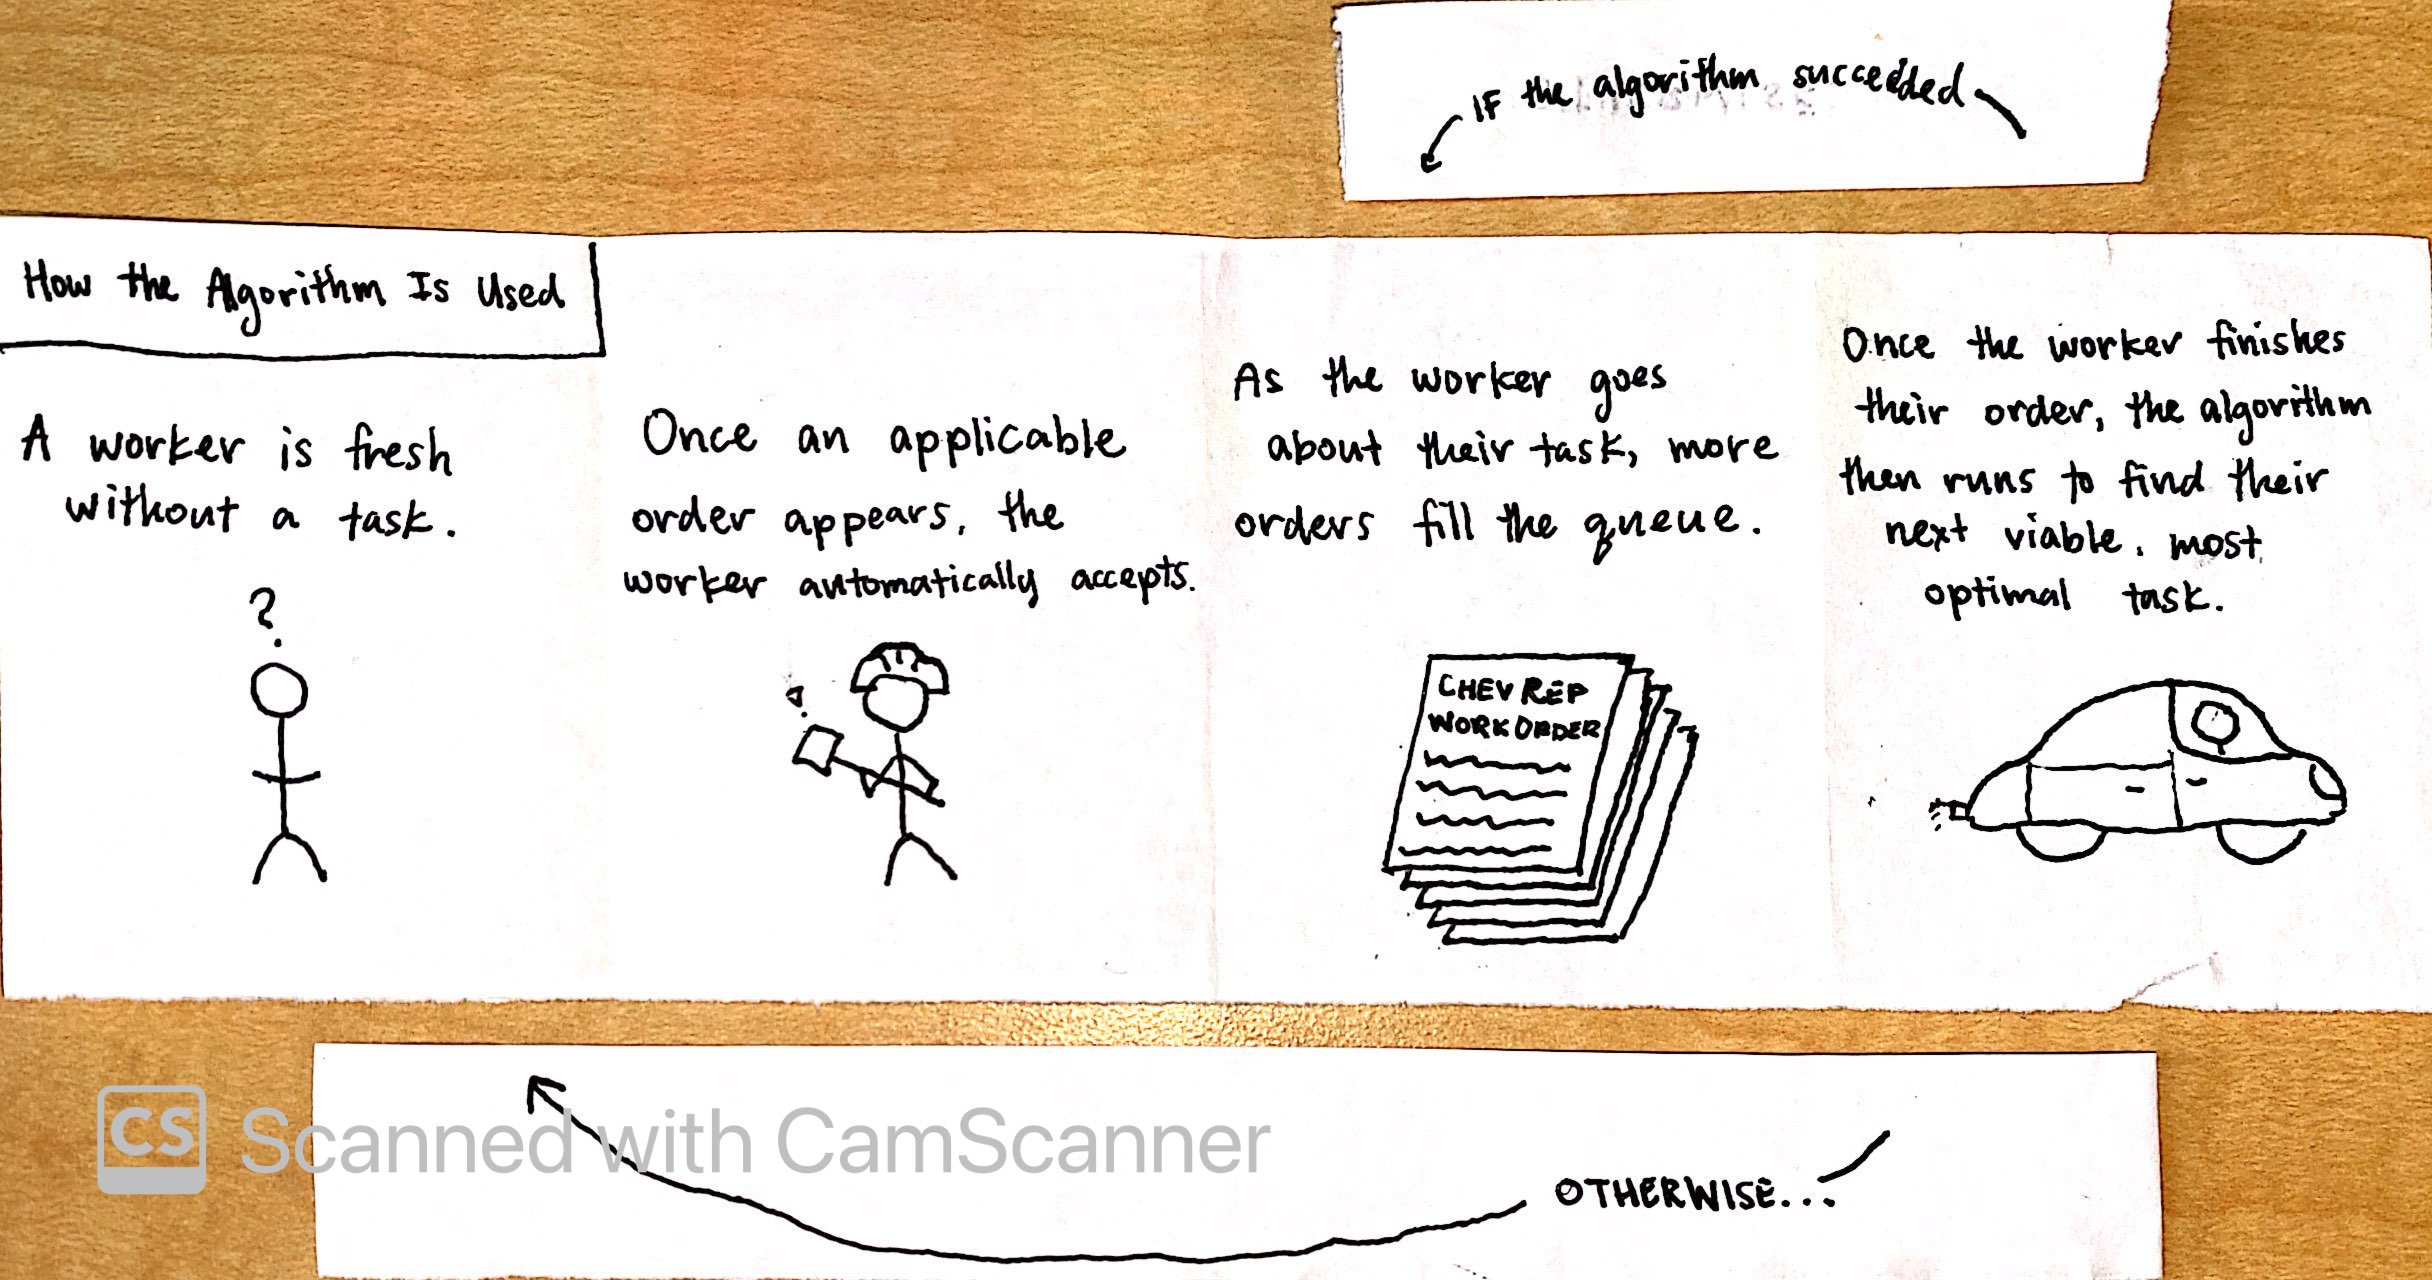 IF the algorithm succedded
How the Algorithm Is Used
A worker is fresh
without a task.
?
Once an applicable
order appears, the
worker automatically accepts.
As the worker goes
about their task, more
orders fill the queue.
CHEV REP
WORK ORDER
Once the worker finishes
their order, the algorithm
then runs to find their
next viable, most
optimal task.
OTHERWISE...
CS Scanned with CamScanner